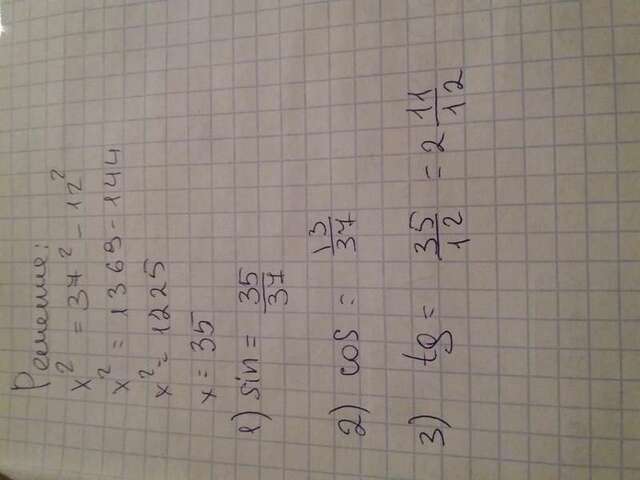 Решение:
x² = 37² - 12²
x² = 1369 - 144
x² = 1225
x = 35
1) sin = 35/37
2) cos = 13/37
3) tg = 35/12 = 2 11/12